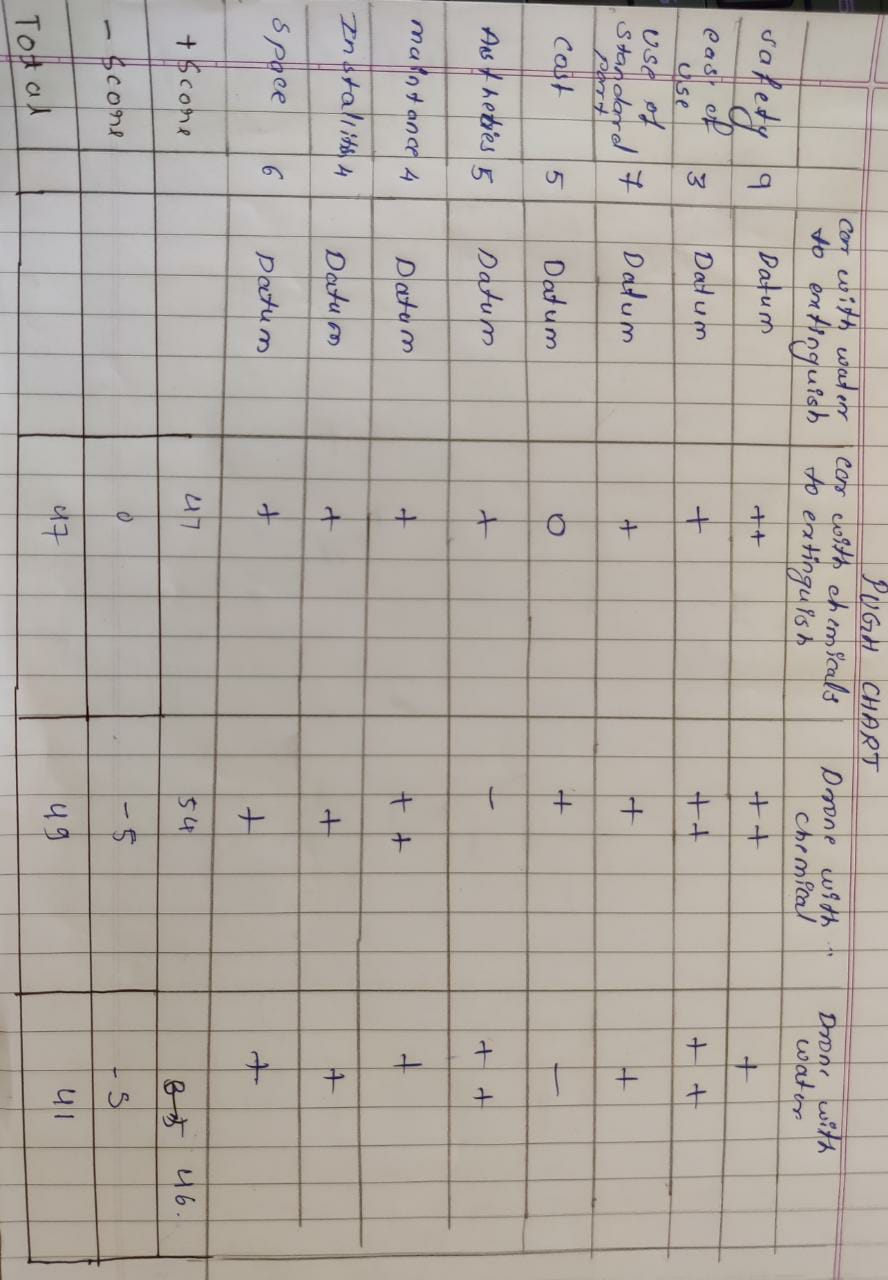 PUGH CHART
car with water to extinguish car with chemicals to extinguish Drone with chemical Drone with water
safety 9 Datum ++ ++ +
ease of use 3 Datum + ++ ++
use of standard part 7 Datum + + +
cost 5 Datum 0 + -
5 Datum + - ++
maintance 4 Datum + ++ +
4 Datum + + +
space 6 Datum + + +
+ Score 47 54 46.
- Score 0 -5 -5
Total 47 49 41